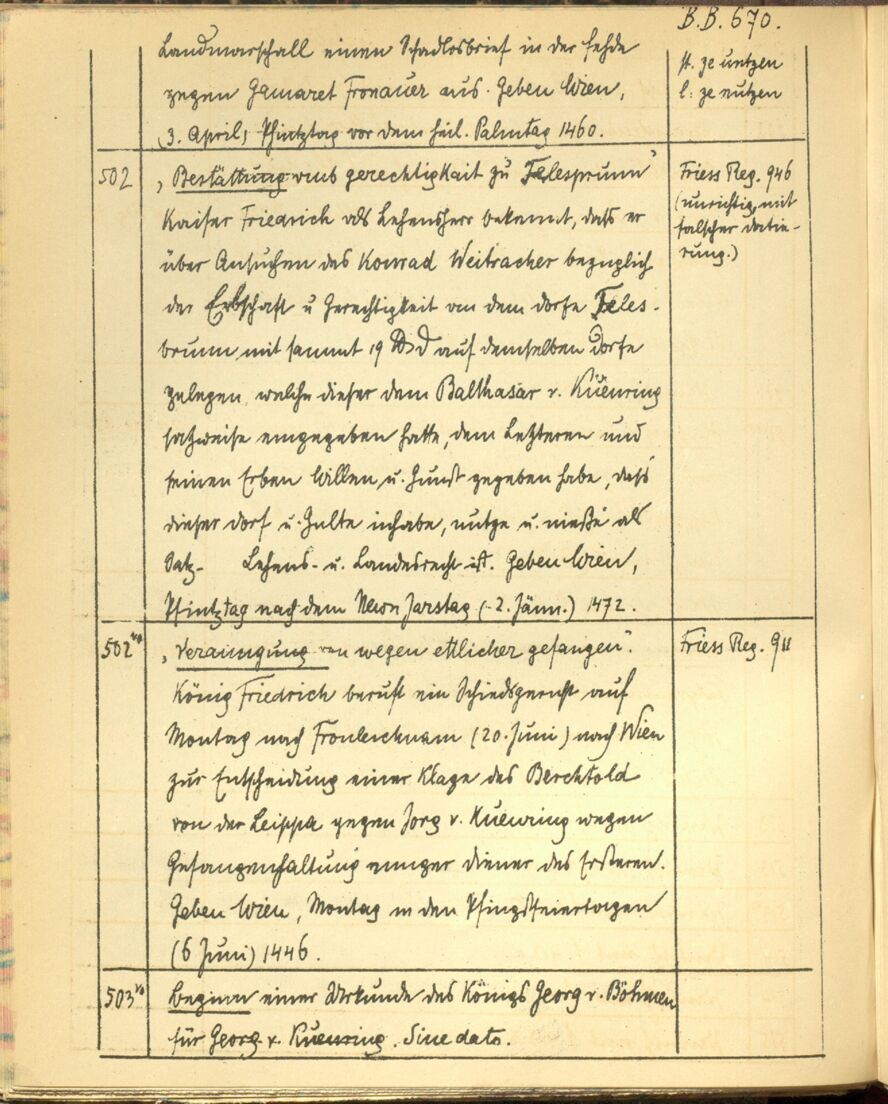 B.B. 670.
Landmarschall einen Schadlosbrief in der Fehde
gegen Gamaret Fronauer aus. Geben Wien,
(3. April) Phintztag vor dem heil. Palmtag 1460.
st. ze untzen
l: ze nutzen
502
„Bestättung umb gerechtigkait zu Felesprunn"
Kaiser Friedrich als Lehensherr bekennt, dass er
über Ansuchen des Konrad Weitracher bezüglich
der Erbschaft u Gerechtigkeit von dem dorfe Feles-
brunn mit sammt 19 ₰ auf demselben Dorfe
gelegen, welche dieser dem Balthasar v. Kuenring
satzweise eingegeben hatte, dem Letzteren und
seinen Erben Willen u. Gunst gegeben habe, dass
dieser dorf u. Gulte inhabe, nutze u. nieße als
Satz- Lehens- u. Landesrecht ist. Geben Wien,
Phintztag nach dem Newn Jarstag (2. Jänn.) 1472.
Friess Reg. 946
(unrichtig, mit
falscher datie-
rung.)
502 vo
„Verainigung von wegen ettlicher gefangen".
König Friedrich beruft ein Schiedsgericht auf
Montag nach Fronleichnam (20. Juni) nach Wien
zur Entscheidung einer Klage des Berchtold
von der Leippa gegen Jorg v. Kuenring wegen
Gefangenhaltung einiger diener des Ersteren.
Geben Wien, Montag in den Pfingstfeiertagen
(6 Juni) 1446.
Friess Reg. 911
503 vo
Beginn einer Urkunde des Königs Georg v. Böhmen
für Georg v. Kuenring. Sine dato.